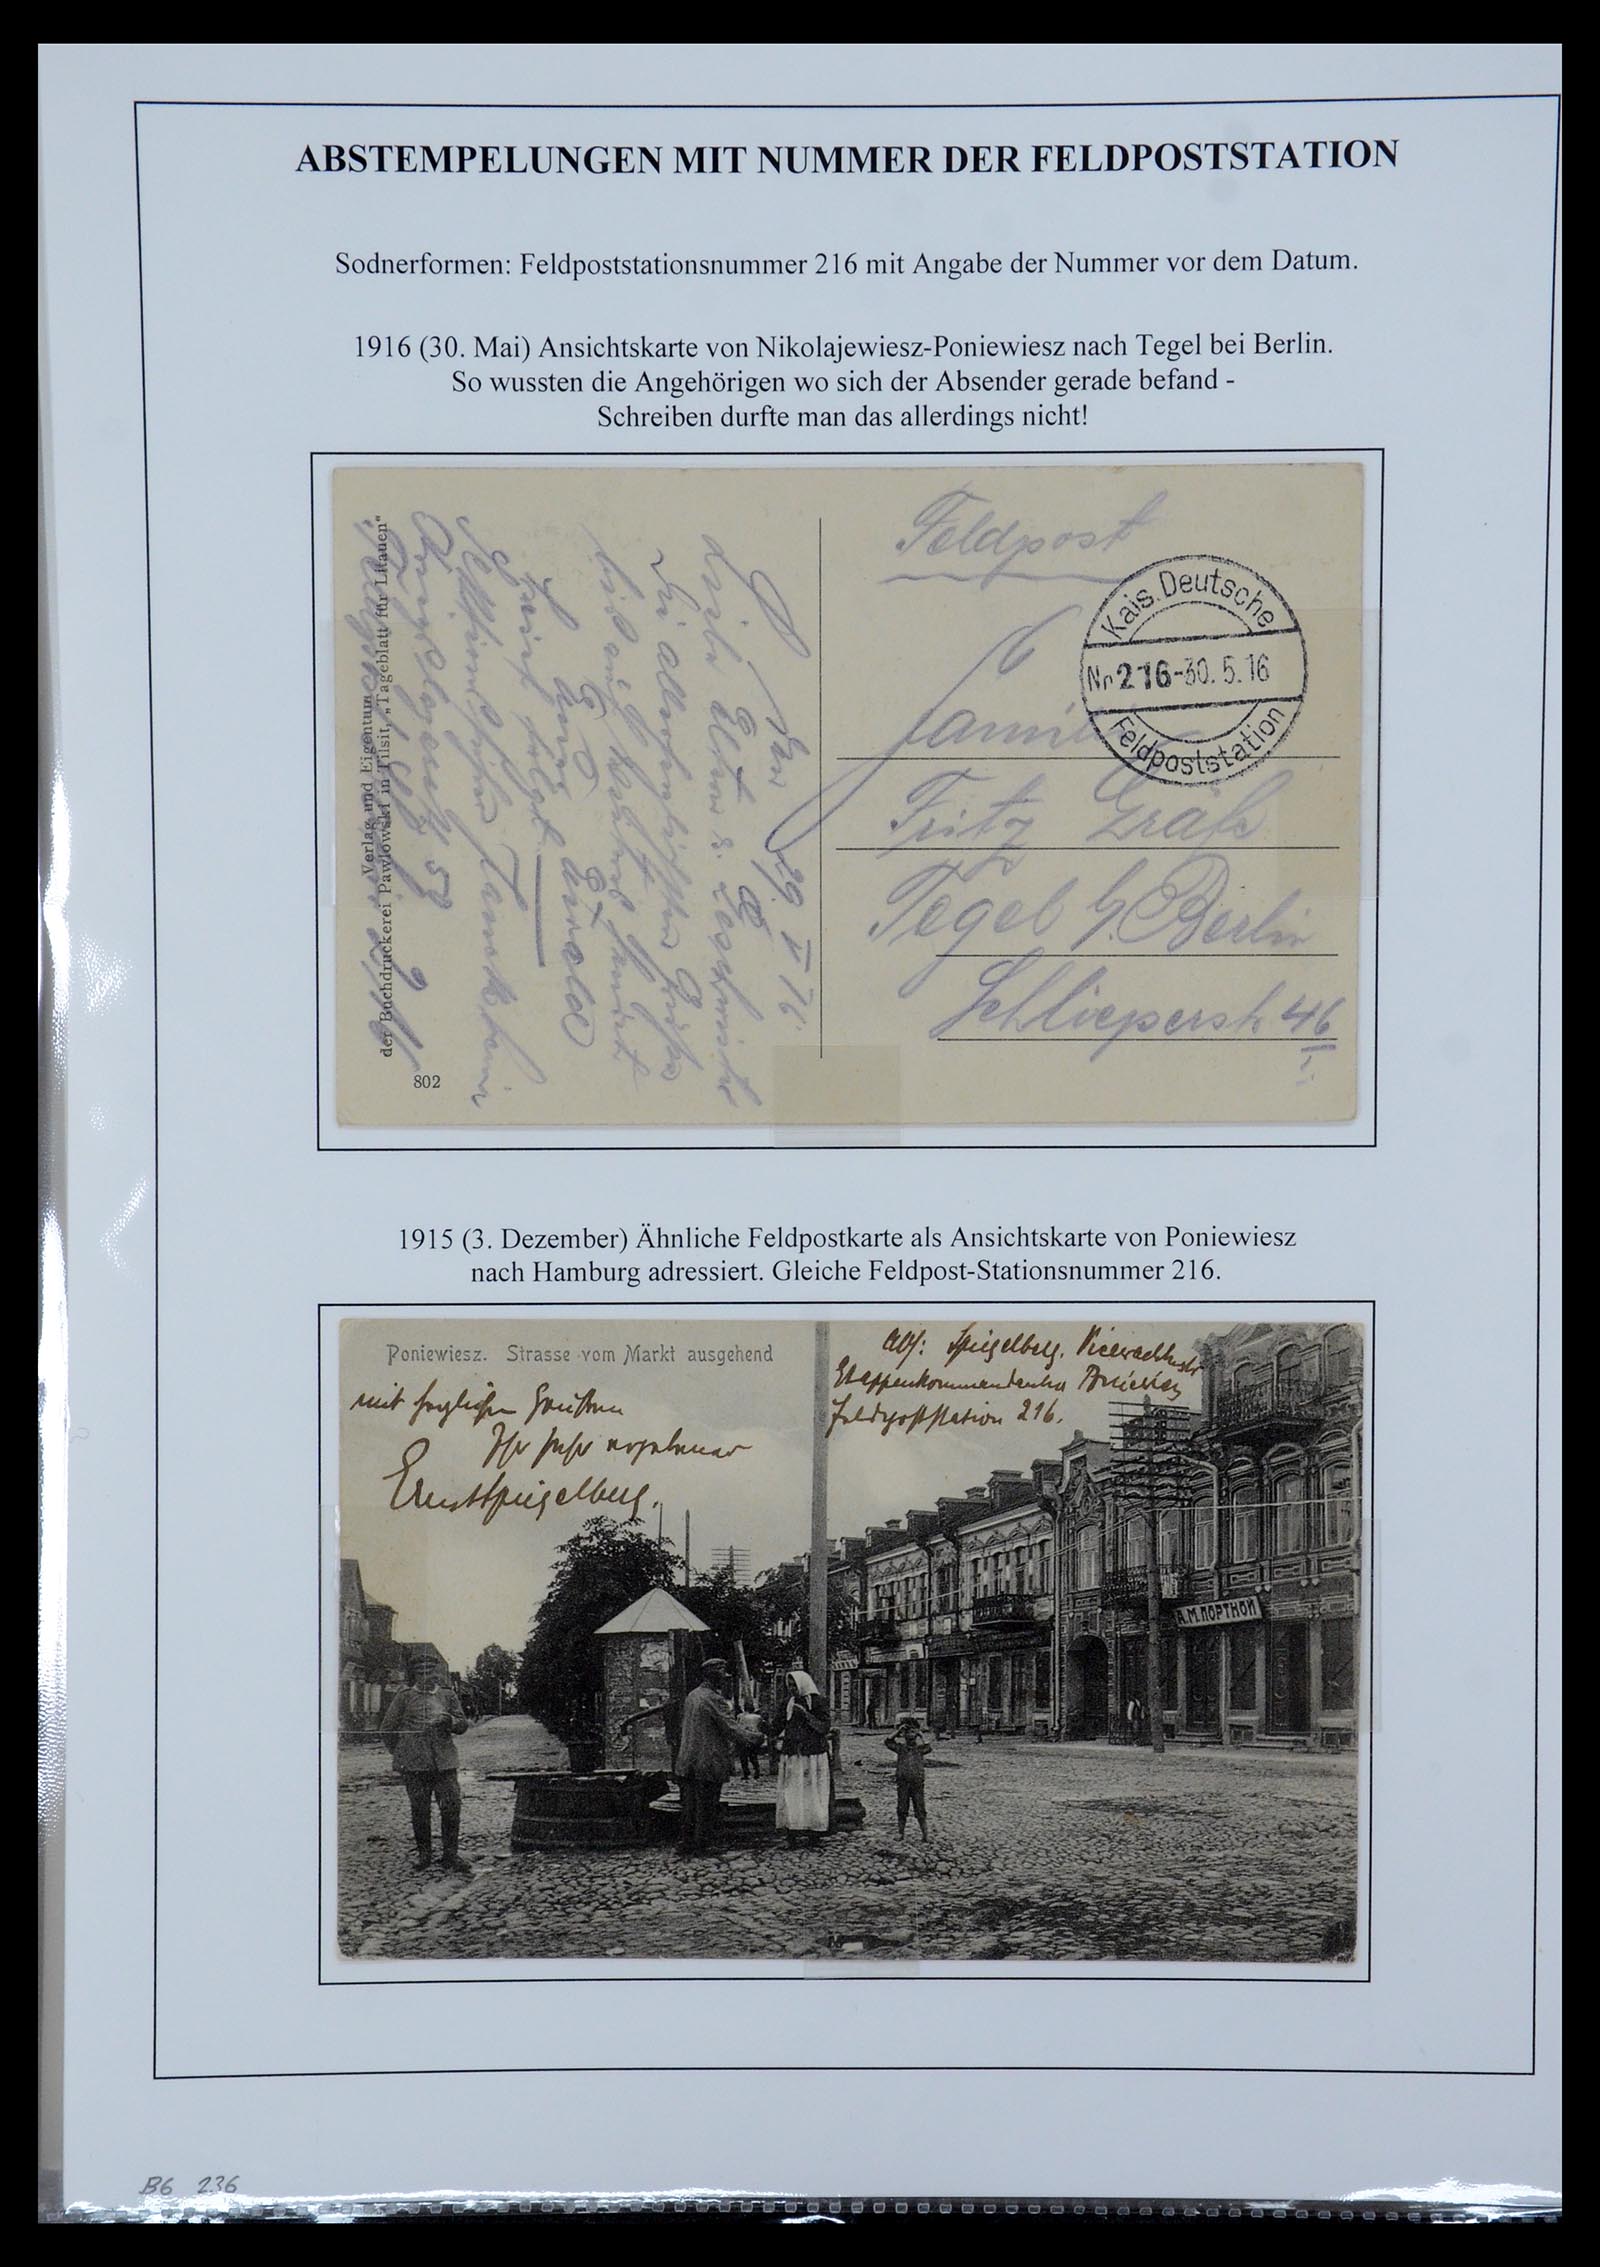 ABSTEMPELUNGEN MIT NUMMER DER FELDPOSTSTATION
Sodnerformen: Feldpoststationsnummer 216 mit Angabe der Nummer vor dem Datum.
1916 (30. Mai) Ansichtskarte von Nikolajewiesz-Poniewiesz nach Tegel bei Berlin.
So wussten die Angehörigen wo sich der Absender gerade befand -
Schreiben durfte man das allerdings nicht!
Feldpost
Kais. Deutsche
Nr. 216 - 30. 5. 16
Feldpoststation
Familie
Fritz Gräfe
Tegel b/ Berlin
Schlieperstr. 46
29 V 16
Verlag und Eigentum
der Buchdruckerei Pawlowski in Tilsit, „Tageblatt für Litauen“
802
1915 (3. Dezember) Ähnliche Feldpostkarte als Ansichtskarte von Poniewiesz
nach Hamburg adressiert. Gleiche Feldpost-Stationsnummer 216.
Poniewiesz. Strasse vom Markt ausgehend
Abs: Spiegelberg, Vicewachtmstr
Etappenkommandantur Poniewiesz
Feldpoststation 216.
mit herzlichen Grüssen
Ihr sehr ergebener
Ernst Spiegelberg.
А.М.ПОРТНОЙ
B6 236